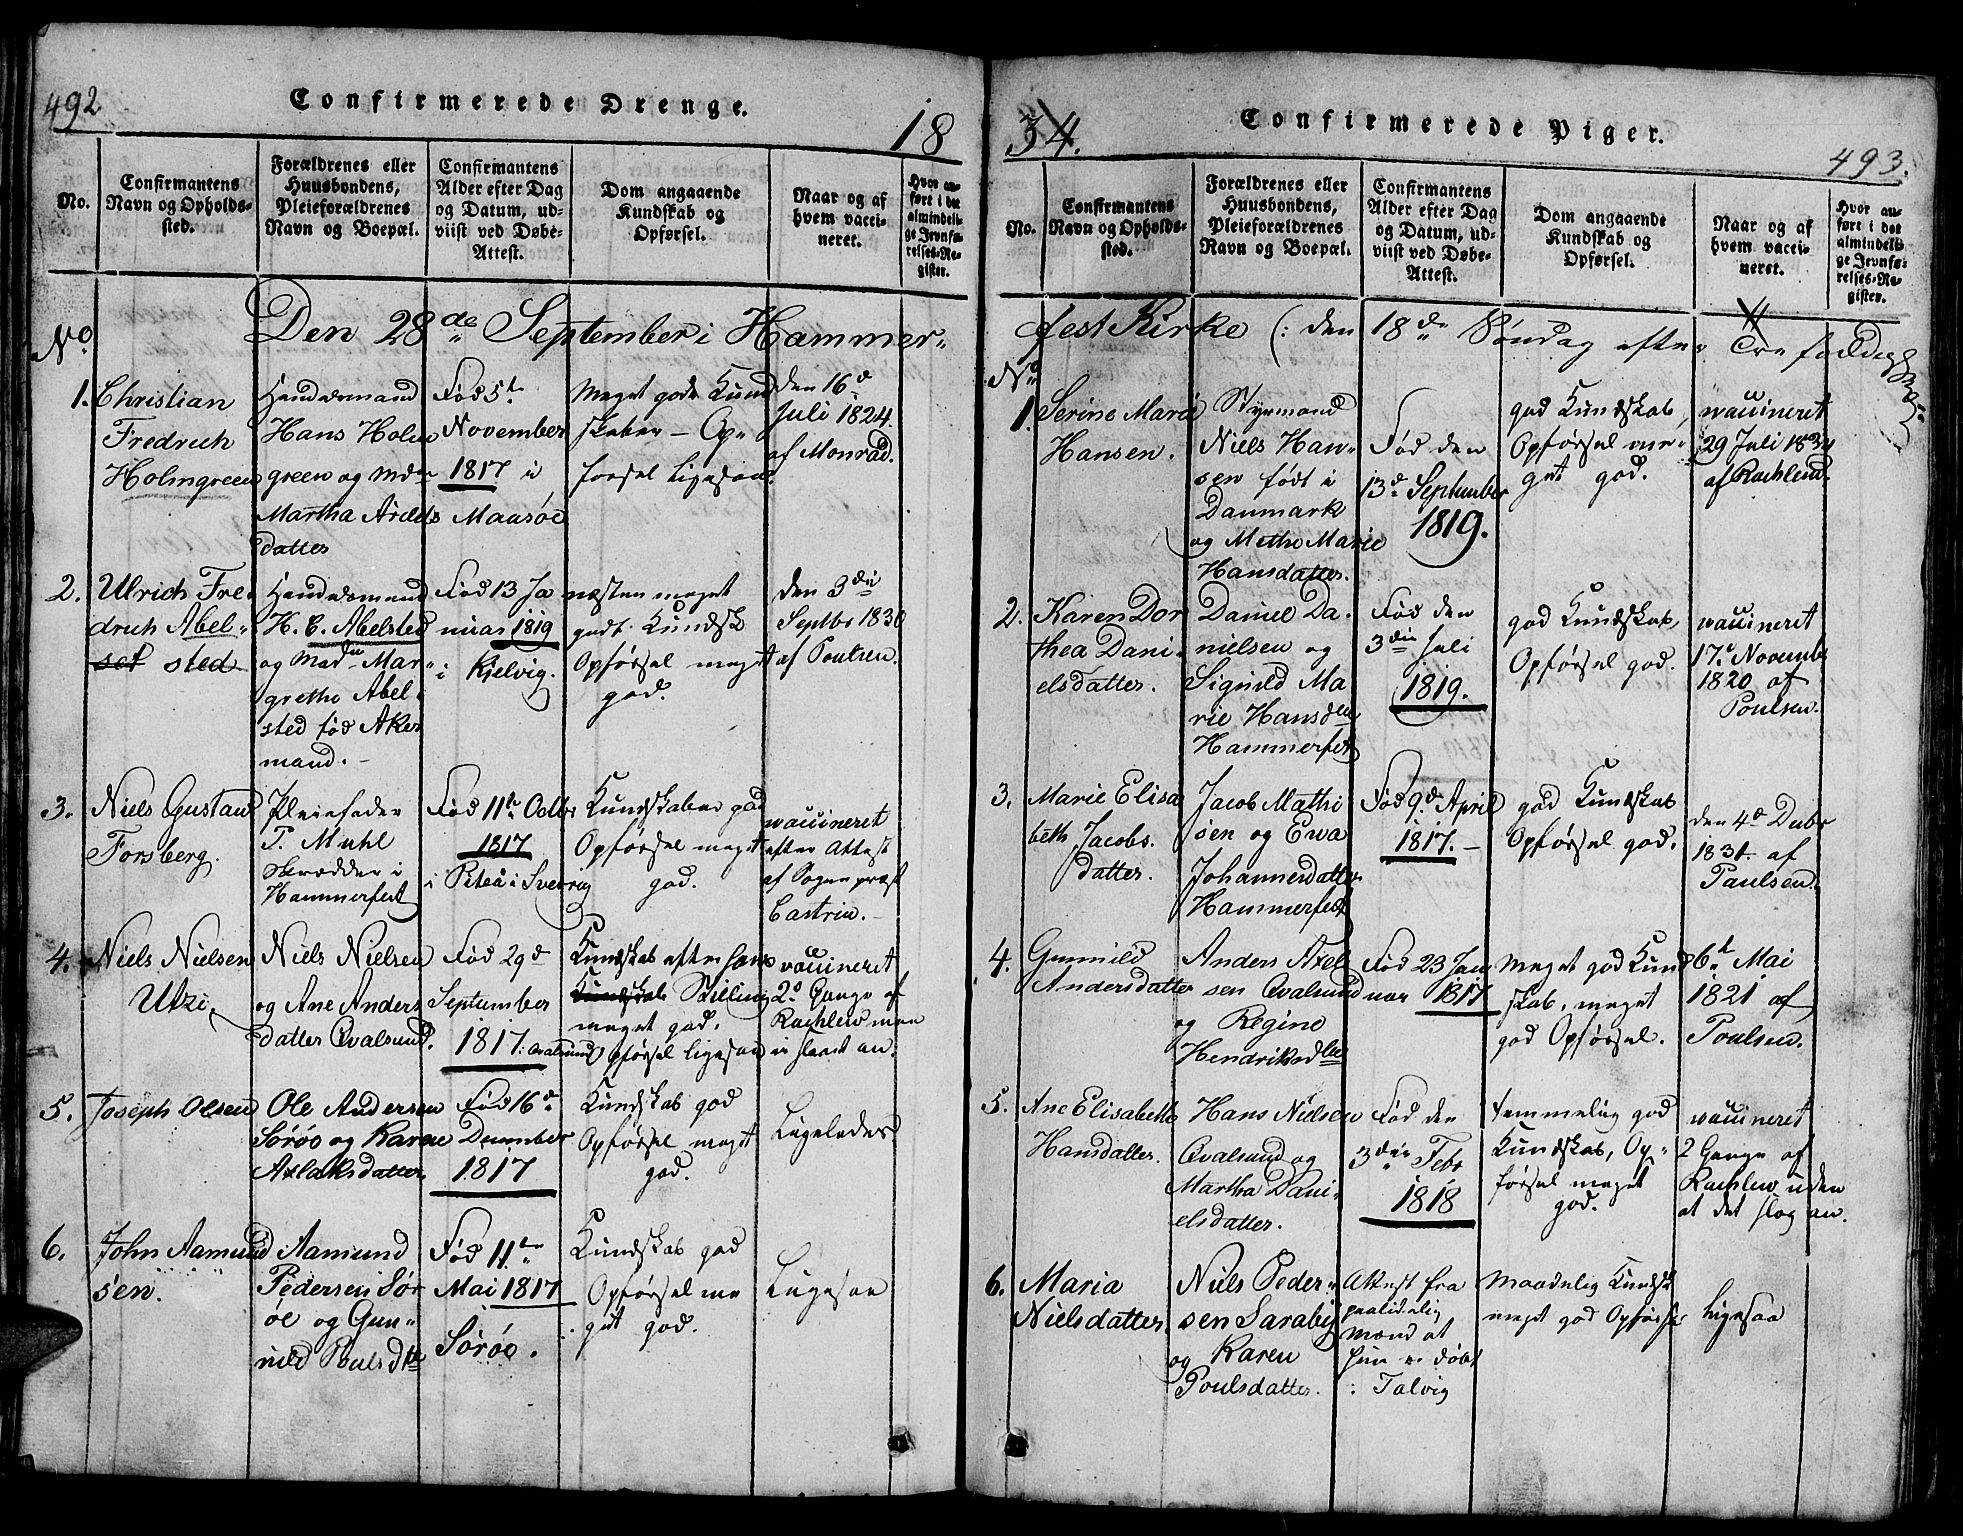 492
Confirmerede Drenge.
18
No.
Confirmantens
Navn og Opholds-
sted.
Forældrenes eller
Huusbondens,
Pleieforældrenes
Navn og Boepæl.
Confirmantens
Alder efter Dag
og Datum, ud-
viist ved Døbe-
Attest.
Dom angaaende
Kundskab og
Opførsel.
Naar og af
hvem vacci-
neret.
Hvor an-
ført i det
almindeli-
ge Jevnfø-
relses-Re-
gister.
Den 28de September i Hammer-
No
1.
Christian
Fredrich
Holmgreen
Handelsmand
Hans Holm
green og Mdm
Martha Arilds
datter
Fød 5te
November
1817 i
Maasøe
Meget gode Kund
skaber - Op-
førsel ligesaa.
den 16d
Juli 1824.
af Monrad.
2.
Ulrich Fre-
drich Abel-
set sted
Handelsmand
H. C. Abelsted
og Mad. Mar-
grethe Abel-
sted fød Aker
mand. -
Fød 13 Ja
nuar 1819
i Kjelvig.
næsten meget
godt Kundsk
Opførsel meget
god.
den 3die
Septbr 1830
af Poulsen.
3.
Niels Gustav
Forsberg.
Pleiefader
P. Muhl
Skrædder i
Hammerfest
Fød 11te Octbr
1817
i Piteå i Sverrig
Kundskaber god
Opførsel meget
god.
vaccineret
efter Attest
af Sognepræst
Castrin. -
4.
Niels Nielsen
Utzi.
Niels Nielsen
og Ane Anders
datter Qvalsund.
Fød 29d
September
1817: Qvalsund
Kundskab efter hans
Kundskab Stilling
meget god.
Opførsel ligesaa
vaccineret
2o Gange af
Rachlew men
ei slaaet an.
5.
Joseph Olsen
Ole Andersen
Sørøe og Karen
Axlaksdatter
Fød 16de
December
1817
Kundskab god
Opførsel meget
god.
Ligeledes
6.
John Aamund
sen.
Aamund
Pedersen Sør
øe og Gun-
nild Poulsdtr
Fød 11te
Mai 1817
Sørøe.
Kundskab god
Opførsel me
get god.
Ligesaa
34.
Confirmerede Piger.
493.
No.
Confirmantens
Navn og Opholds-
sted.
Forældrenes eller
Huusbondens,
Pleieforældrenes
Navn og Boepæl.
Confirmantens
Alder efter Dag
og Datum, ud-
viist ved Døbe-
Attest.
Dom angaaende
Kundskab og
Opførsel.
Naar og af
hvem vacci-
neret.
Hvor an-
ført i det
almindeli-
ge Jevnfø-
relses-Re-
gister.
fest Kirke (: den 18de Søndag efter Trefoldigh
No
1.
Serine Marie
Hansen.
Styrmand
Niels Han-
sen født i
Danmark
og Methe Marie
Hansdatter.
Fød den
13de September
1819.
god Kundskab,
Opførsel me-
get god.
vaccineret
29 Juli 1834
af Rachlew.
2.
Karen Dor
thea Dani-
elsdatter.
Daniel Da-
nielsen og
Signild Ma
rie Hansdtr
Hammerfest
Fød den
3die Juli
1819.
god Kundskab,
Opførsel god.
vaccineret
17 Novemb
1820 af
Poulsen.
3.
Marie Elisa
beth Jacobs.
datter.
Jacob Mathi
sen og Ewa
Johannesdatter
Hammerfest
Fød 9de April
1817. -
god Kundskab
Opførsel god.
den 4de Decbr
1831. af
Paulsen.
4.
Gunnild
Andersdatter
Anders Axel
sen Qvalsund
og Regine
Hendriksdtr
Fød 23 Jan
uar 1817
Meget god Kund
skab, meget
god Opførsel.
6te Mai
1821 af
Poulsen.
5.
Ane Elisabeth
Hansdatter.
Hans Nielsen
Qvalsund og
Martha Dani-
elsdatter.
Fød den
3die Febr
1818
temmelig god
Kundskab, Op-
førsel meget
god.
vaccineret
2 Gange af
Rachlew uden
at det slog an.
6.
Maria
Nielsdatter.
Niels Peder-
sen Saraby
og Karen
Poulsdatter.
Attest fra
paalidelig
Mænd at
hun er døbt
i Talvig
Maadelig Kundsk
meget god Opførsel
ligesaa